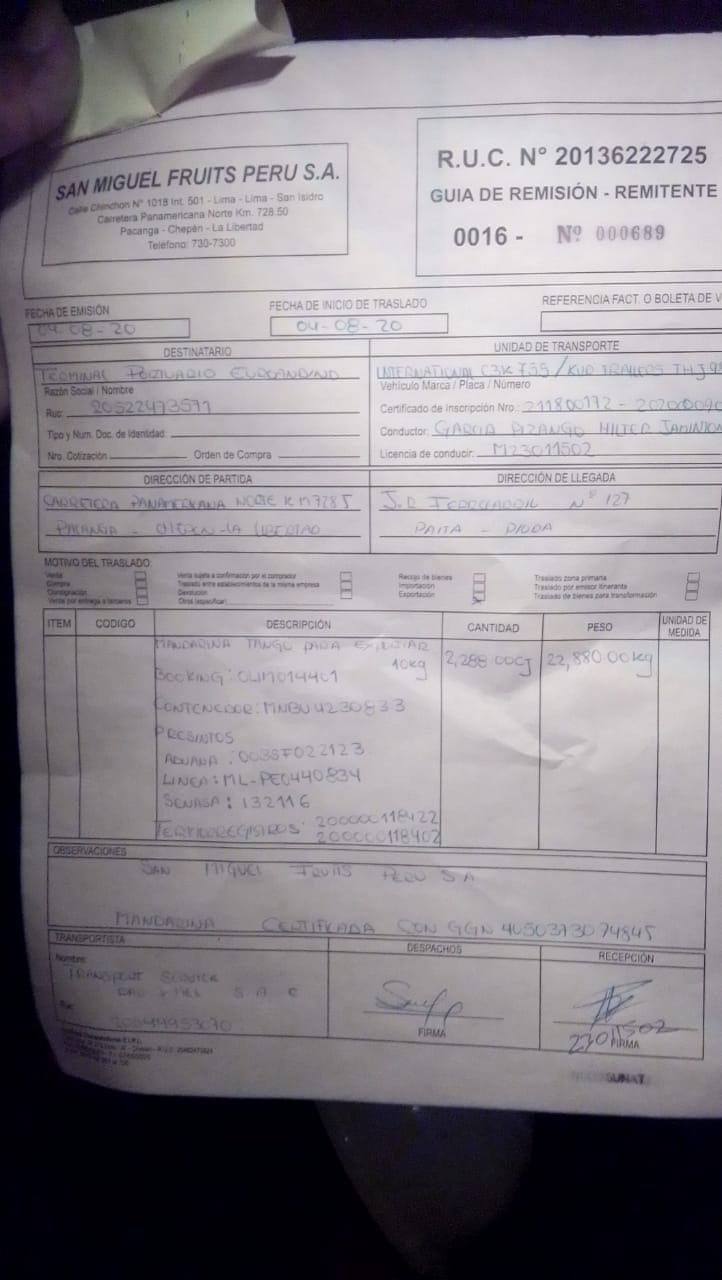 SAN MIGUEL FRUITS PERU S.A.
Calle Chinchon N° 1018 Int. 501 - Lima - Lima - San Isidro
Carretera Panamericana Norte Km. 728.50
Pacanga - Chepén - La Libertad
Teléfono: 730-7300
R.U.C. N° 20136222725
GUIA DE REMISIÓN - REMITENTE
0016 - Nº 000689
FECHA DE EMISIÓN
04-08-20
FECHA DE INICIO DE TRASLADO
04-08-20
REFERENCIA FACT. O BOLETA DE V
DESTINATARIO
TERMINAL PORTUARIO EUROANDINO
Razón Social / Nombre
Ruc: 20522473571
Tipo y Num. Doc. de Identidad:
Nro. Cotización Orden de Compra
UNIDAD DE TRANSPORTE
INTERNATIONAL C3K 755 /
Vehículo Marca / Placa / Número
Certificado de Inscripción Nro.: 211800172 -
Conductor: GARCIA PIZANGO HILTER
Licencia de conducir: M23011502
DIRECCIÓN DE PARTIDA
CARRETERA PANAMERICANA NORTE KM 728.5
PACANGA - CHEPEN - LA LIBERTAD
DIRECCIÓN DE LLEGADA
J.R FERROCARRIL N° 127
PAITA - PIURA
MOTIVO DEL TRASLADO:
Venta
Compra
Consignación
Venta por entrega a terceros
Venta sujeta a confirmación por el comprador
Traslado entre establecimientos de la misma empresa
Devolución
Otros (especificar)
Recojo de bienes
Importación
Exportación
Traslado zona primaria
Traslado por emisor itinerante
Traslado de bienes para transformación
ITEM CODIGO DESCRIPCIÓN CANTIDAD PESO UNIDAD DE MEDIDA
MANDARINA TANGO PARA
10kg 2,288.00CJ 22,880.00kg
BOOKING: OLIM014401
CONTENEDOR: MNBU4230833
PRESINTOS
ADUANA: 003SF022123
LINEA: ML-PE0440834
SENASA: 132116
TERMOREGISTROS 200000118422
200000118402
OBSERVACIONES
SAN MIGUEL FRUITS PERU S A
MANDARINA CERTIFICADA CON GGN 4050373074845
TRANSPORTISTA
Nombre:
TRANSPORT SERVICE
S A C
Ruc:
20544953070
DESPACHOS
FIRMA
RECEPCIÓN
FIRMA
SUNAT